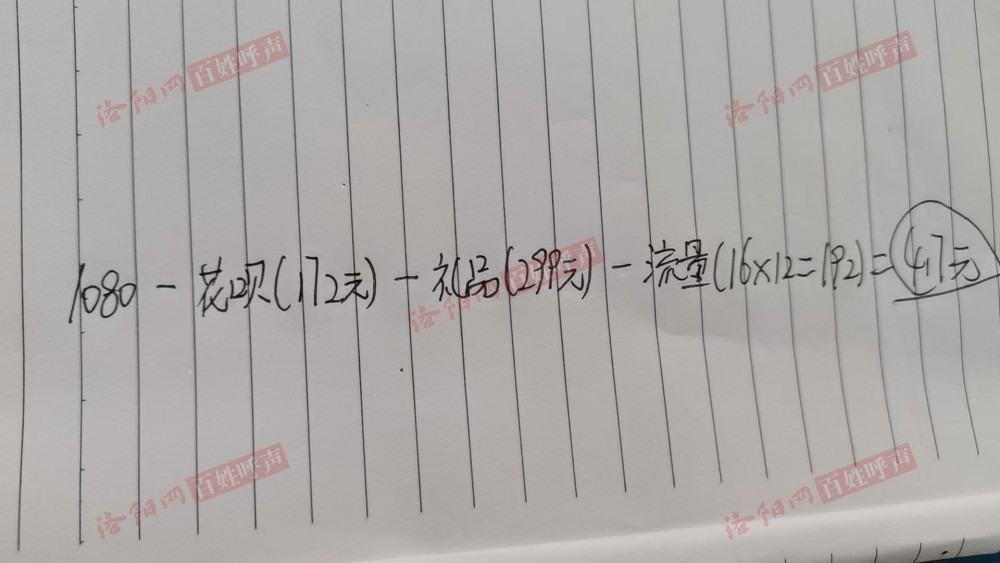 洛阳网 百姓呼声
洛阳网 百姓呼声
1080 - 花呗(172元) - 礼品(299元) - 流量(16×12=192)=417元
洛阳网 百姓呼声
洛阳网 百姓呼声
洛阳网 百姓呼声